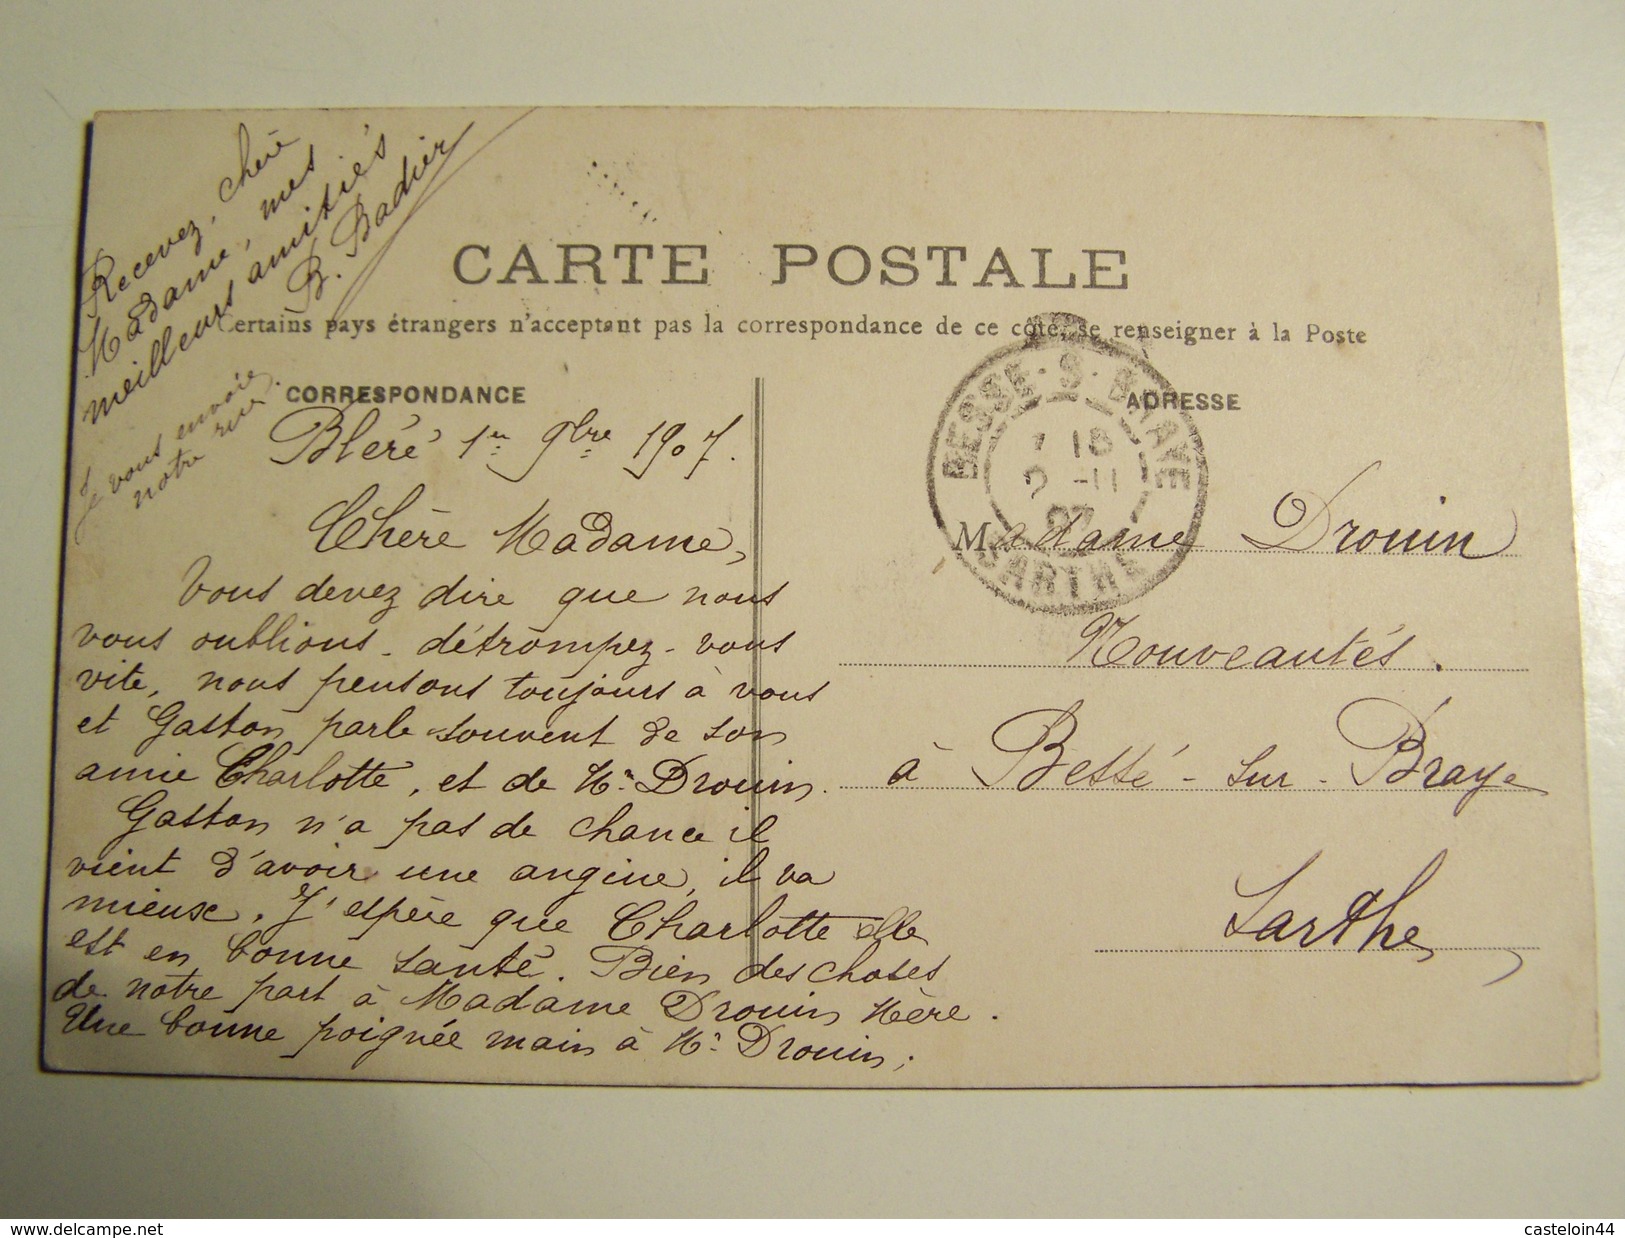 Recevez, chère
Madame, mes
meilleurs amitiés
B. Badier
Je vous envoie
notre rue.
CARTE POSTALE
Certains pays étrangers n'acceptent pas la correspondance de ce côté, se renseigner à la Poste
CORRESPONDANCE
Bléré 1er 9bre 1907.
Chère Madame,
Vous devez dire que nous
vous oublions - détrompez-vous
vite, nous pensons toujours à vous
et Gaston parle souvent de son
amie Charlotte, et de Mr Drouin.
Gaston n'a pas de chance il
vient d'avoir une angine, il va
mieux. J'espère que Charlotte elle
est en bonne santé. Bien des choses
de notre part à Madame Drouin Mère.
Une bonne poignée main à Mr Drouin.
ADRESSE
BESSE-S-BRAYE
18
2 -11
07
SARTHE
Madame Drouin
Nouveautés.
à Bessé-sur-Braye
Sarthe
www.delcampe.net
casteloin44